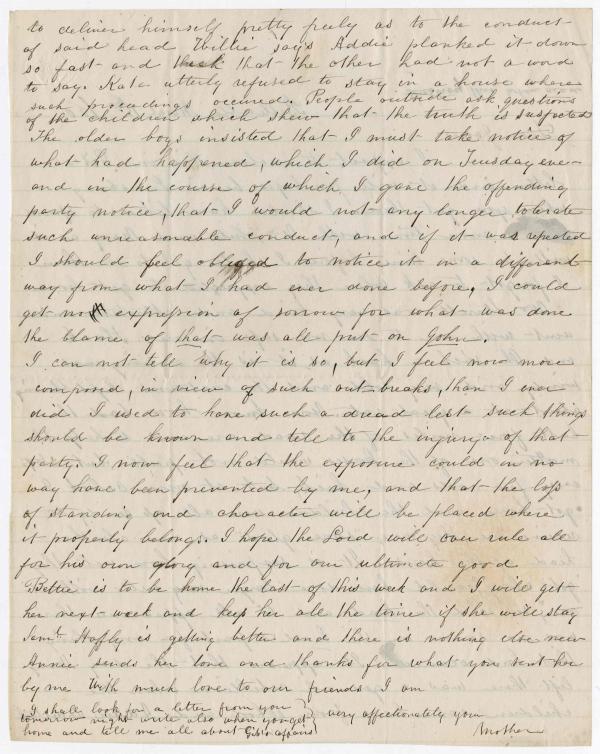 to deliver himself pretty freely as to the conduct
of said head Willie says Addie planked it down
so fast and thick that the other had not a word
to say. Kate utterly refused to stay in a house where
such proceadings occured. People outside ask questions
of the children which shew that the truth is suspected
The older boys insisted that I must take notice of
what had happened, which I did on Tuesday eve-
and in the course of which I gave the offending
party notice, that I would not any longer tolerate
such unreasonable conduct, and if it was repeated
I should feel obliged to notice it in a different
way from what I had ever done before, I could
get no expression of sorrow for what was done
the blame of that was all put on John.
I can not tell why it is so, but I feel now more
composed, in view of such out breaks, than I ever
did I used to have such a dread lest such things
should be known and tell to the injury of that
party. I now feel that the exposure could in no
way have been prevented by me, and that the loss
of standing and character will be placed where
it properly belongs. I hope the Lord will over rule all
for his own glory and for our ultimate good
Bettie is to be home the last of this week and I will get
her next week and keep her all the time if she will stay
Saml. is getting better and there is nothing else new
Annie sends her love and thanks for what you sent her
by me With much love to our friends I am
I shall look for a letter from you
tomorrow night write also when you get
home and tell me all about affairs
very affectionately your
Mother